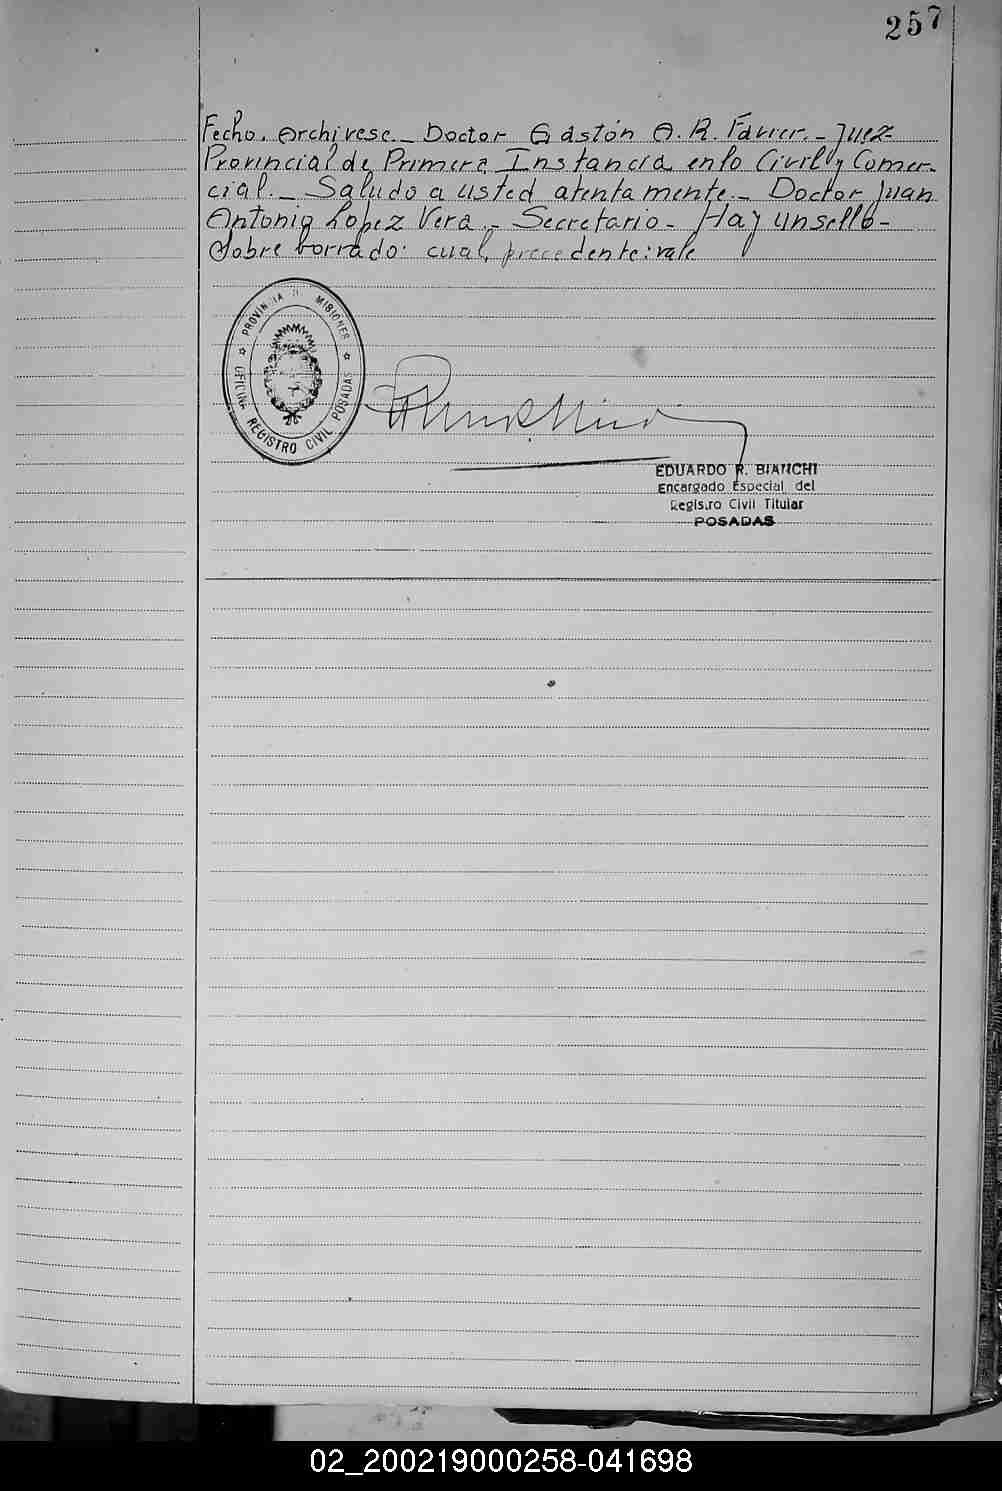 257
Fecho. Archivese._ Doctor Gastón A. R. Favier._ Juez
Provincial de Primera Instancia en lo Civil y Comer-
cial._ Saludo a usted atentamente._ Doctor Juan
Antonio Lopez Vera._ Secretario_ Hay un sello_
Sobre borrado: cual, precedente: vale
PROVINCIA DE MISIONES
OFICINA REGISTRO CIVIL POSADAS
EDUARDO R. BIANCHI
Encargado Especial del
Registro Civil Titular
POSADAS
02_200219000258-041698